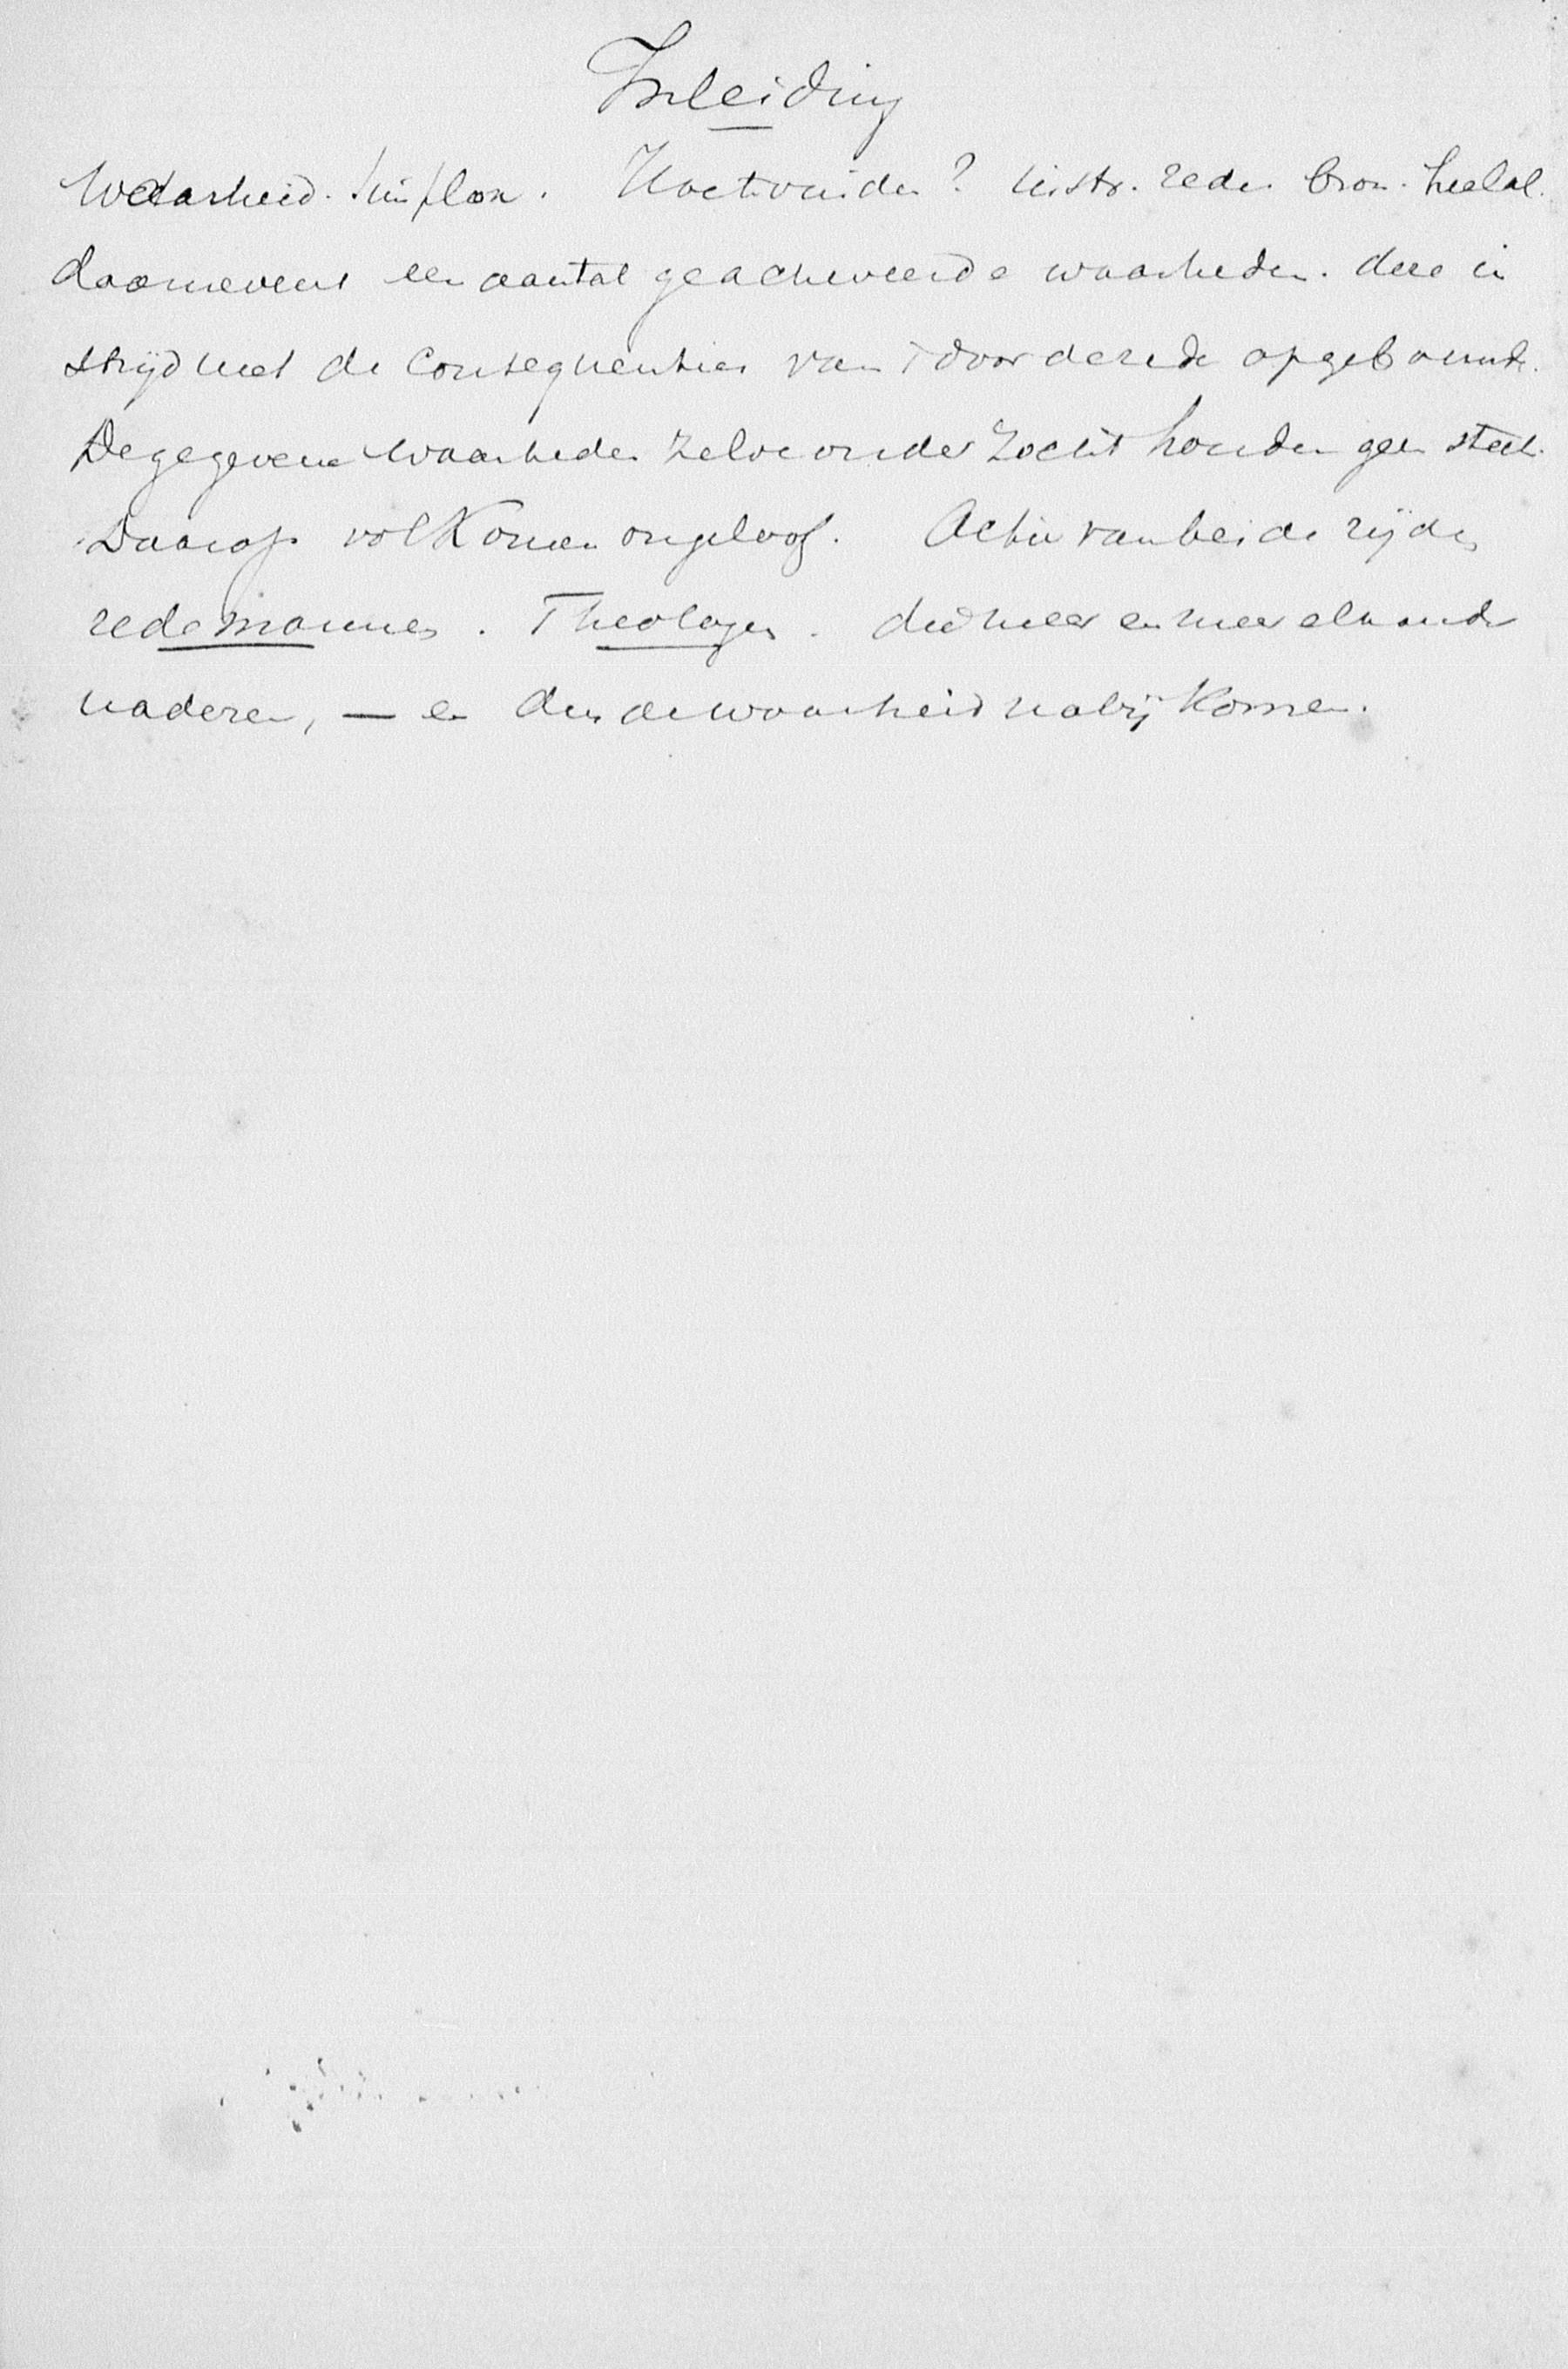 Inleiding
Waarheid. Simplex. Hoe te vinden? histr. rede. bron. heelal.
daarnevens een aantal geacheveerde waarheden. deze in
strijd met de Consequenties van 't door de rede opgebouwde.
De gegevene waarheden zelve onderzocht houden geen steek.
Daarop volkomen ongeloof. Actie van beide zijden
redemannen. Theologen. die meer en meer elkander
naderen, — en dus de waarheid nabij komen.